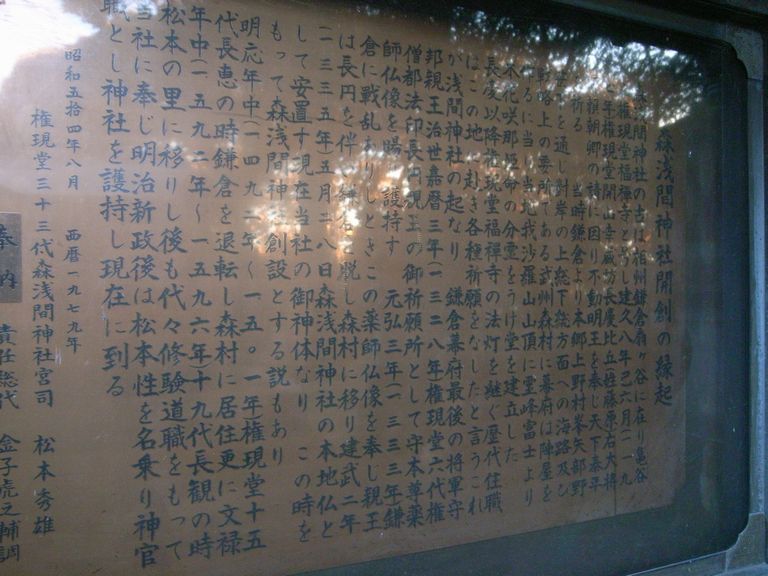 森浅間神社開創の縁起
浅間神社の古は相州鎌倉扇ヶ谷に在り亀谷
権現堂福禅寺と号し建久八年己六月(一一九
年権現堂開山 蔵坊長慶比丘(姓藤原右大将
頼朝卿の請に因り不動明王を奉じ天下泰平
祈る 当時鎌倉より本郷上野村峯矢部野
を通し対岸の上総下総方面への海路及び
戦略上の要所である武州森村に幕府は陣屋を
るに当り当地我沙羅山山頂に霊峰富士より
木花咲耶姫命の分霊をうけ堂を建立した
長慶以降権現堂福禅寺の法灯を継ぐ歴代住職
はこの地に赴き各種祈願をなしたと言うこれ
が浅間神社の起なり 鎌倉幕府最後の将軍守
邦親王治世嘉暦三年(一三二八年)権現堂六代権
僧都法印長円親王の御祈願所として守本尊薬
師仏像を賜 護持す 元弘三年(一三三三年)鎌
倉に戦乱ありしときこの薬師仏像を奉じ親王
は長円を伴い鎌倉を脱し森村に移り建武二年
(一三三五年)五月二八日森浅間神社の本地仏と
して安置す現在当社の御神体なり この時を
もって森浅間神社創設とする説もあり
明応年中(一四九二年〜一五〇一年)権現堂十五
代長恵の時鎌倉を退転し森村に居住更に文禄
年中(一五九二年〜一五九六年)十九代長観の時
松本の里に移りし後も代々修験道職をもって
当社に奉じ明治新政後は松本性を名乗り神官
職とし神社を護持し現在に到る
昭和五十四年八月 西暦一九七九年
権現堂三十三代森浅間神社宮司 松本秀雄
奉納
責任総代 金子虎之輔調